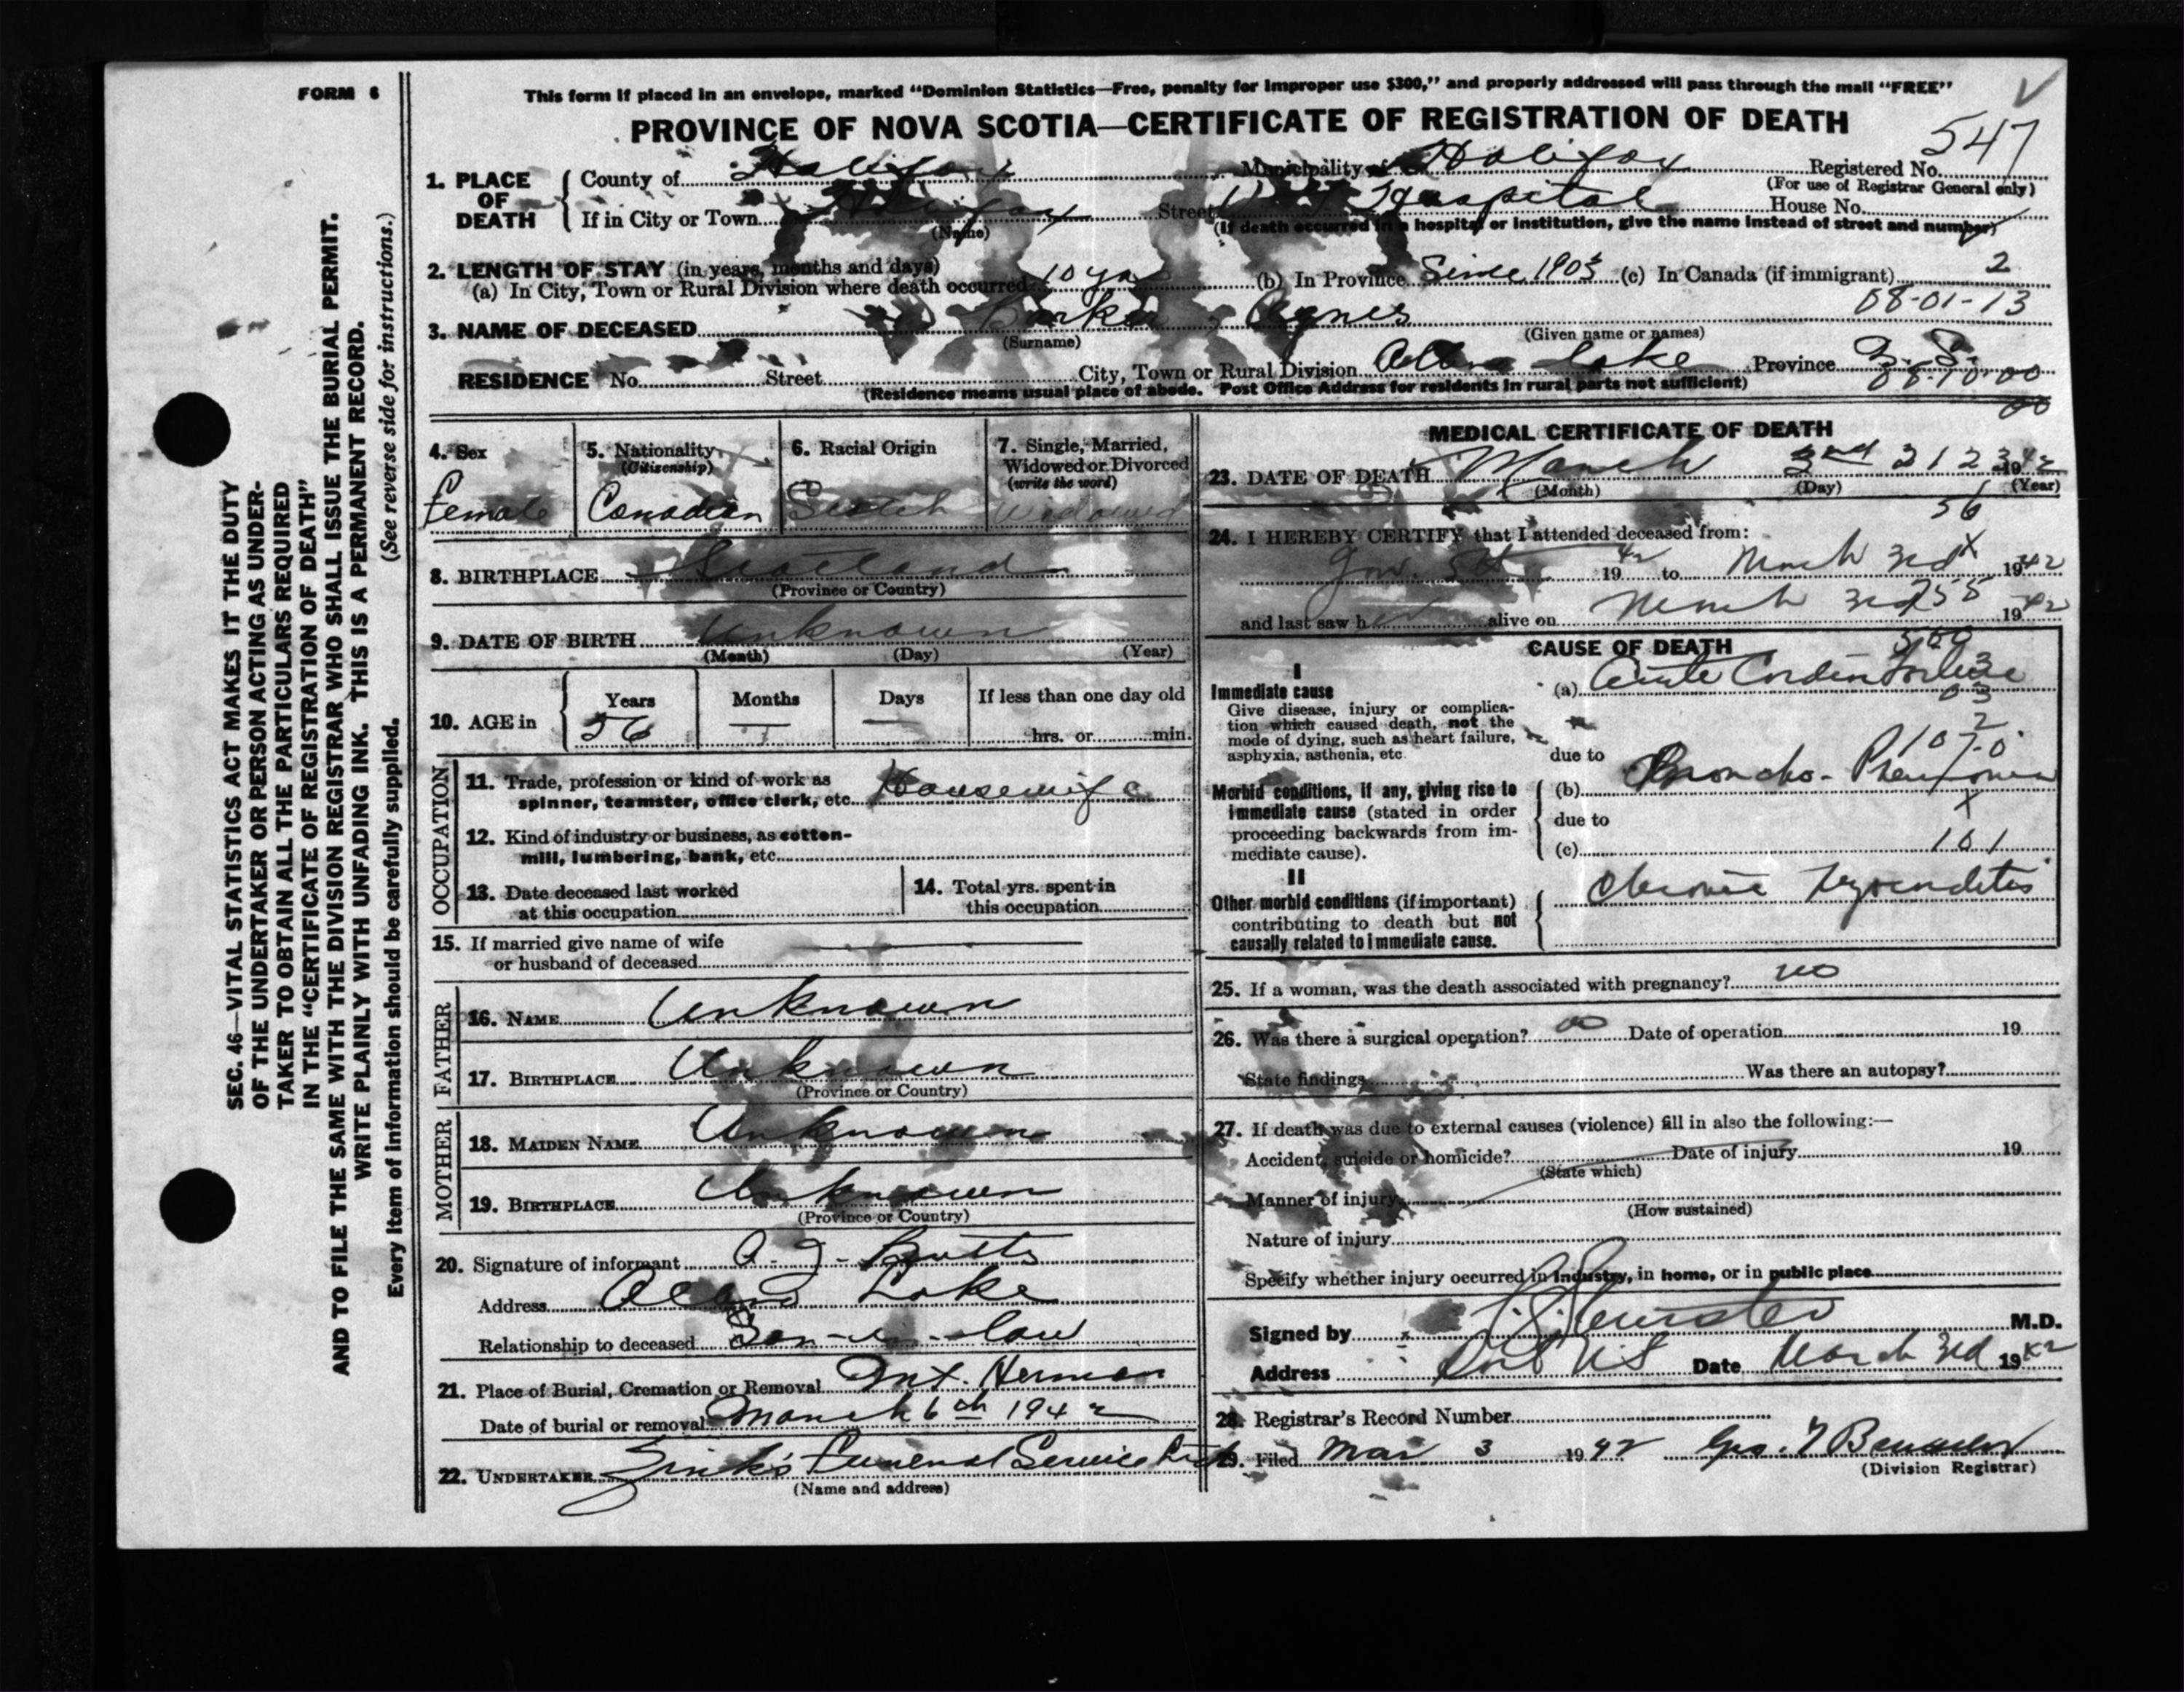 FORM 6
This form if placed in an envelope, marked “Dominion Statistics—Free, penalty for improper use $300,” and properly addressed will pass through the mail “FREE”
PROVINCE OF NOVA SCOTIA—CERTIFICATE OF REGISTRATION OF DEATH
547
1. PLACE OF DEATH
County of Halifax Municipality of Halifax Registered No.
(For use of Registrar General only)
If in City or Town Halifax Street Hospital House No.
(Name) (If death occurred in a hospital or institution, give the name instead of street and number)
2. LENGTH OF STAY (in years, months and days)
(a) In City, Town or Rural Division where death occurred 10 yrs (b) In Province Since 1903 (c) In Canada (if immigrant) 2
08-01-13
3. NAME OF DECEASED Burke, Agnes
(Surname) (Given name or names)
RESIDENCE No. Street City, Town or Rural Division Lake Province N. S.
08-10-00
(Residence means usual place of abode. Post Office Address for residents in rural parts not sufficient)
00
4. Sex
Female
5. Nationality
(Citizenship)
Canadian
6. Racial Origin
Scotch
7. Single, Married, Widowed or Divorced
(write the word)
Widowed
8. BIRTHPLACE Scotland
(Province or Country)
9. DATE OF BIRTH Unknown
(Month) (Day) (Year)
10. AGE in
Years Months Days If less than one day old
56 — — hrs. or min.
OCCUPATION
11. Trade, profession or kind of work as
spinner, teamster, office clerk, etc. Housewife
12. Kind of industry or business, as cotton-
mill, lumbering, bank, etc.
13. Date deceased last worked
at this occupation
14. Total yrs. spent in
this occupation
15. If married give name of wife
or husband of deceased
FATHER
16. NAME Unknown
17. BIRTHPLACE Unknown
(Province or Country)
MOTHER
18. MAIDEN NAME Unknown
19. BIRTHPLACE Unknown
(Province or Country)
20. Signature of informant A. J. Butts
Address Lake
Relationship to deceased Son-in-law
21. Place of Burial, Cremation or Removal Mt. Hermon
Date of burial or removal March 6th 1942
22. UNDERTAKER Zink's Funeral Service Ltd
(Name and address)
MEDICAL CERTIFICATE OF DEATH
23. DATE OF DEATH March 3rd 1942
(Month) (Day) (Year)
56
24. I HEREBY CERTIFY that I attended deceased from:
Jan. 1942 to March 3rd 1942
and last saw h alive on March 3rd 1942
CAUSE OF DEATH
I
Immediate cause
Give disease, injury or complica-
tion which caused death, not the
mode of dying, such as heart failure,
asphyxia, asthenia, etc
(a) Acute Cardiac Failure
due to
Morbid conditions, if any, giving rise to
immediate cause (stated in order
proceeding backwards from im-
mediate cause).
(b) Broncho-Pneumonia
due to
(c) 101
II
Other morbid conditions (if important)
contributing to death but not
causally related to immediate cause.
Chronic Myocarditis
25. If a woman, was the death associated with pregnancy? no
26. Was there a surgical operation? no Date of operation 19
State findings Was there an autopsy?
27. If death was due to external causes (violence) fill in also the following:—
Accident, suicide or homicide? Date of injury 19
(State which)
Manner of injury
(How sustained)
Nature of injury
Specify whether injury occurred in industry, in home, or in public place
Signed by M.D.
Address Date March 3rd 1942
28. Registrar's Record Number
29. Filed Mar 3 1942
(Division Registrar)
SEC. 46—VITAL STATISTICS ACT MAKES IT THE DUTY
OF THE UNDERTAKER OR PERSON ACTING AS UNDER-
TAKER TO OBTAIN ALL THE PARTICULARS REQUIRED
IN THE “CERTIFICATE OF REGISTRATION OF DEATH”
AND TO FILE THE SAME WITH THE DIVISION REGISTRAR WHO SHALL ISSUE THE BURIAL PERMIT.
WRITE PLAINLY WITH UNFADING INK. THIS IS A PERMANENT RECORD.
Every item of information should be carefully supplied. (See reverse side for instructions.)